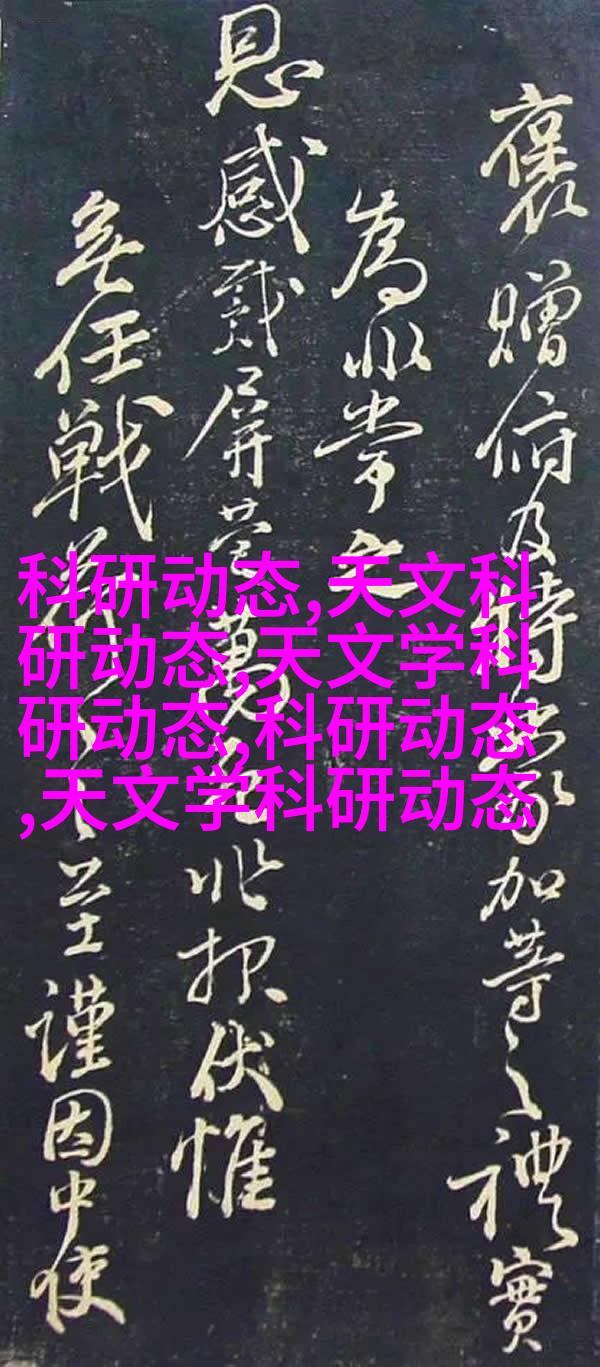 褒贈俯及特蒙加等之禮實
為非常之
恩感戴屏營萬非报伏惟
無任戰之至謹因中使
科研动态,天文科
研动态,天文学科
研动态,科研动态
,天文学科研动态